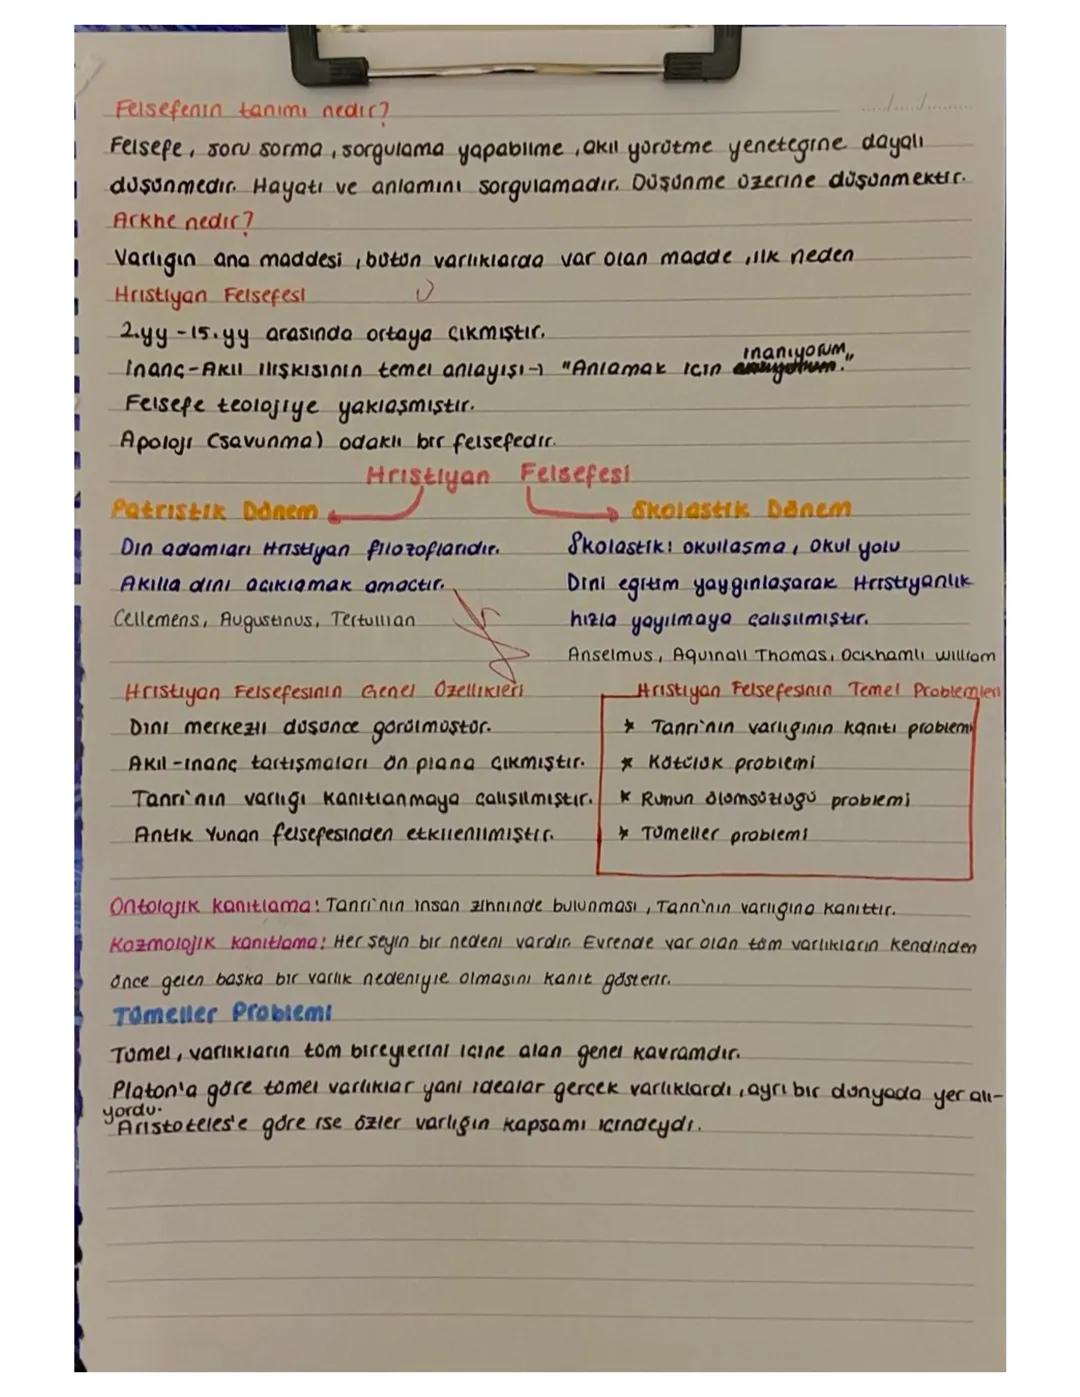 Felsefenin tanımı nedir?
Felsefe, soru sorma, sorgulama yapabilme, akıl yürütme yenetegine dayalı
düşünmedir. Hayatı ve anlamını sorgulamadır. Düşünme üzerine düşünmektir.
Arkhe nedir?
Varlığın ana maddesi, bütün varlıklarda var olan madde, ilk neden
Hristiyan Felsefesi
2.yy-15.yy arasında ortaya çıkmıştır.
İnanç-Akıl ilişkisinin temel anlayışı→ "Anlamak için inanıyorum."
Felsefe teolojiye yaklaşmıştır.
Apoloji (savunma) odaklı bir felsefedir.
Hristiyan Felsefesi
Patristik Dönem
Din adamları Hristiyan filozoflarıdır.
Akılla dini açıklamak amaçtır.
Cellemens, Augustinus, Tertullian
Skolastik Dönem
Skolastik: okullaşma, okul yolu
Dini eğitim yaygınlaşarak Hristiyanlık
hızla yayılmaya çalışılmıştır.
Anselmus, Aquinalı Thomas, Ockhamlı William
Hristiyan Felsefesinin Genel Özellikleri
Dini merkezli düşünce görülmüştür.
Akıl-inanç tartışmaları ön plana çıkmıştır.
Tanrı'nın varlığı kanıtlanmaya çalışılmıştır.
Antik Yunan felsefesinden etkilenilmiştir.
Hristiyan Felsefesinin Temel Problemleri
* Tanrı'nın varlığının kanıtı problemi
* Kötülük problemi
* Ruhun ölümsüzlüğü problemi
* Tümeller problemi
Ontolojik kanıtlama: Tanrı'nın insan zihninde bulunması, Tanrı'nın varlığına kanıttır.
Kozmolojik kanıtlama: Her şeyin bir nedeni vardır. Evrende var olan tüm varlıkların kendinden
önce gelen başka bir varlık nedeniyle olmasını kanıt gösterir.
Tümeller Problemi
Tümel, varlıkların tüm bireylerini içine alan genel kavramdır.
Platon'a göre tümel varlıklar yani idealar gerçek varlıklardı, ayrı bir dünyada yer alı-
yordu.
Aristoteles'e göre ise özler varlığın kapsamı içindeydi.